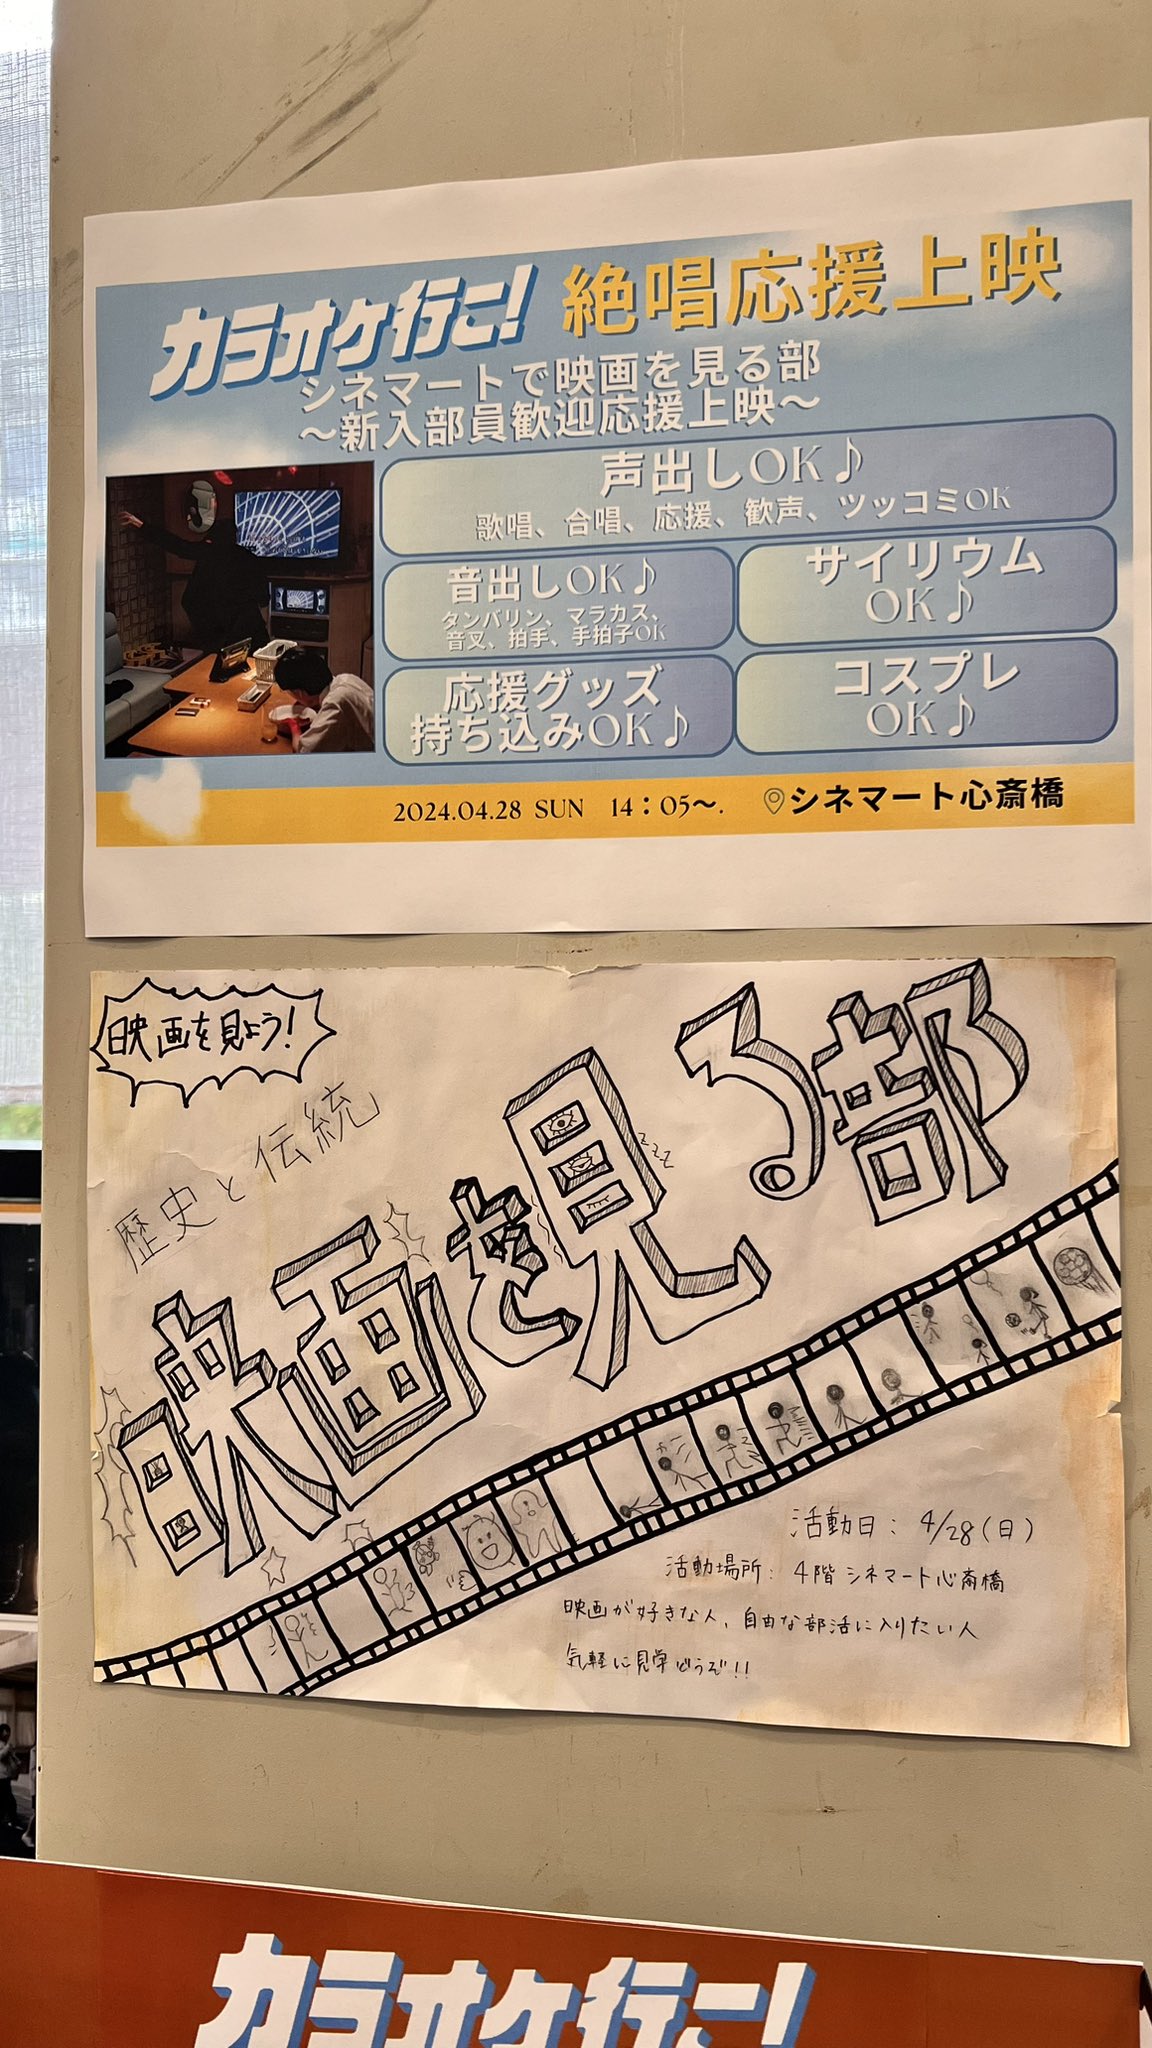 カラオケ行こ! 絶唱応援上映
シネマートで映画を見る部
〜新入部員歓迎応援上映〜
声出しOK♪
歌唱、合唱、応援、歓声、ツッコミOK
音出しOK♪
タンバリン、マラカス、
音叉、拍手、手拍子OK
サイリウム
OK♪
応援グッズ
持ち込みOK♪
コスプレ
OK♪
2024.04.28 SUN 14：05〜.
シネマート心斎橋
映画を見よう!
歴史と伝統
映画を見る部
zzz
活動日：4/28(日)
活動場所：4階シネマート心斎橋
映画が好きな人、自由な部活に入りたい人
気軽に見学どうぞ!!
カラオケ行こ!